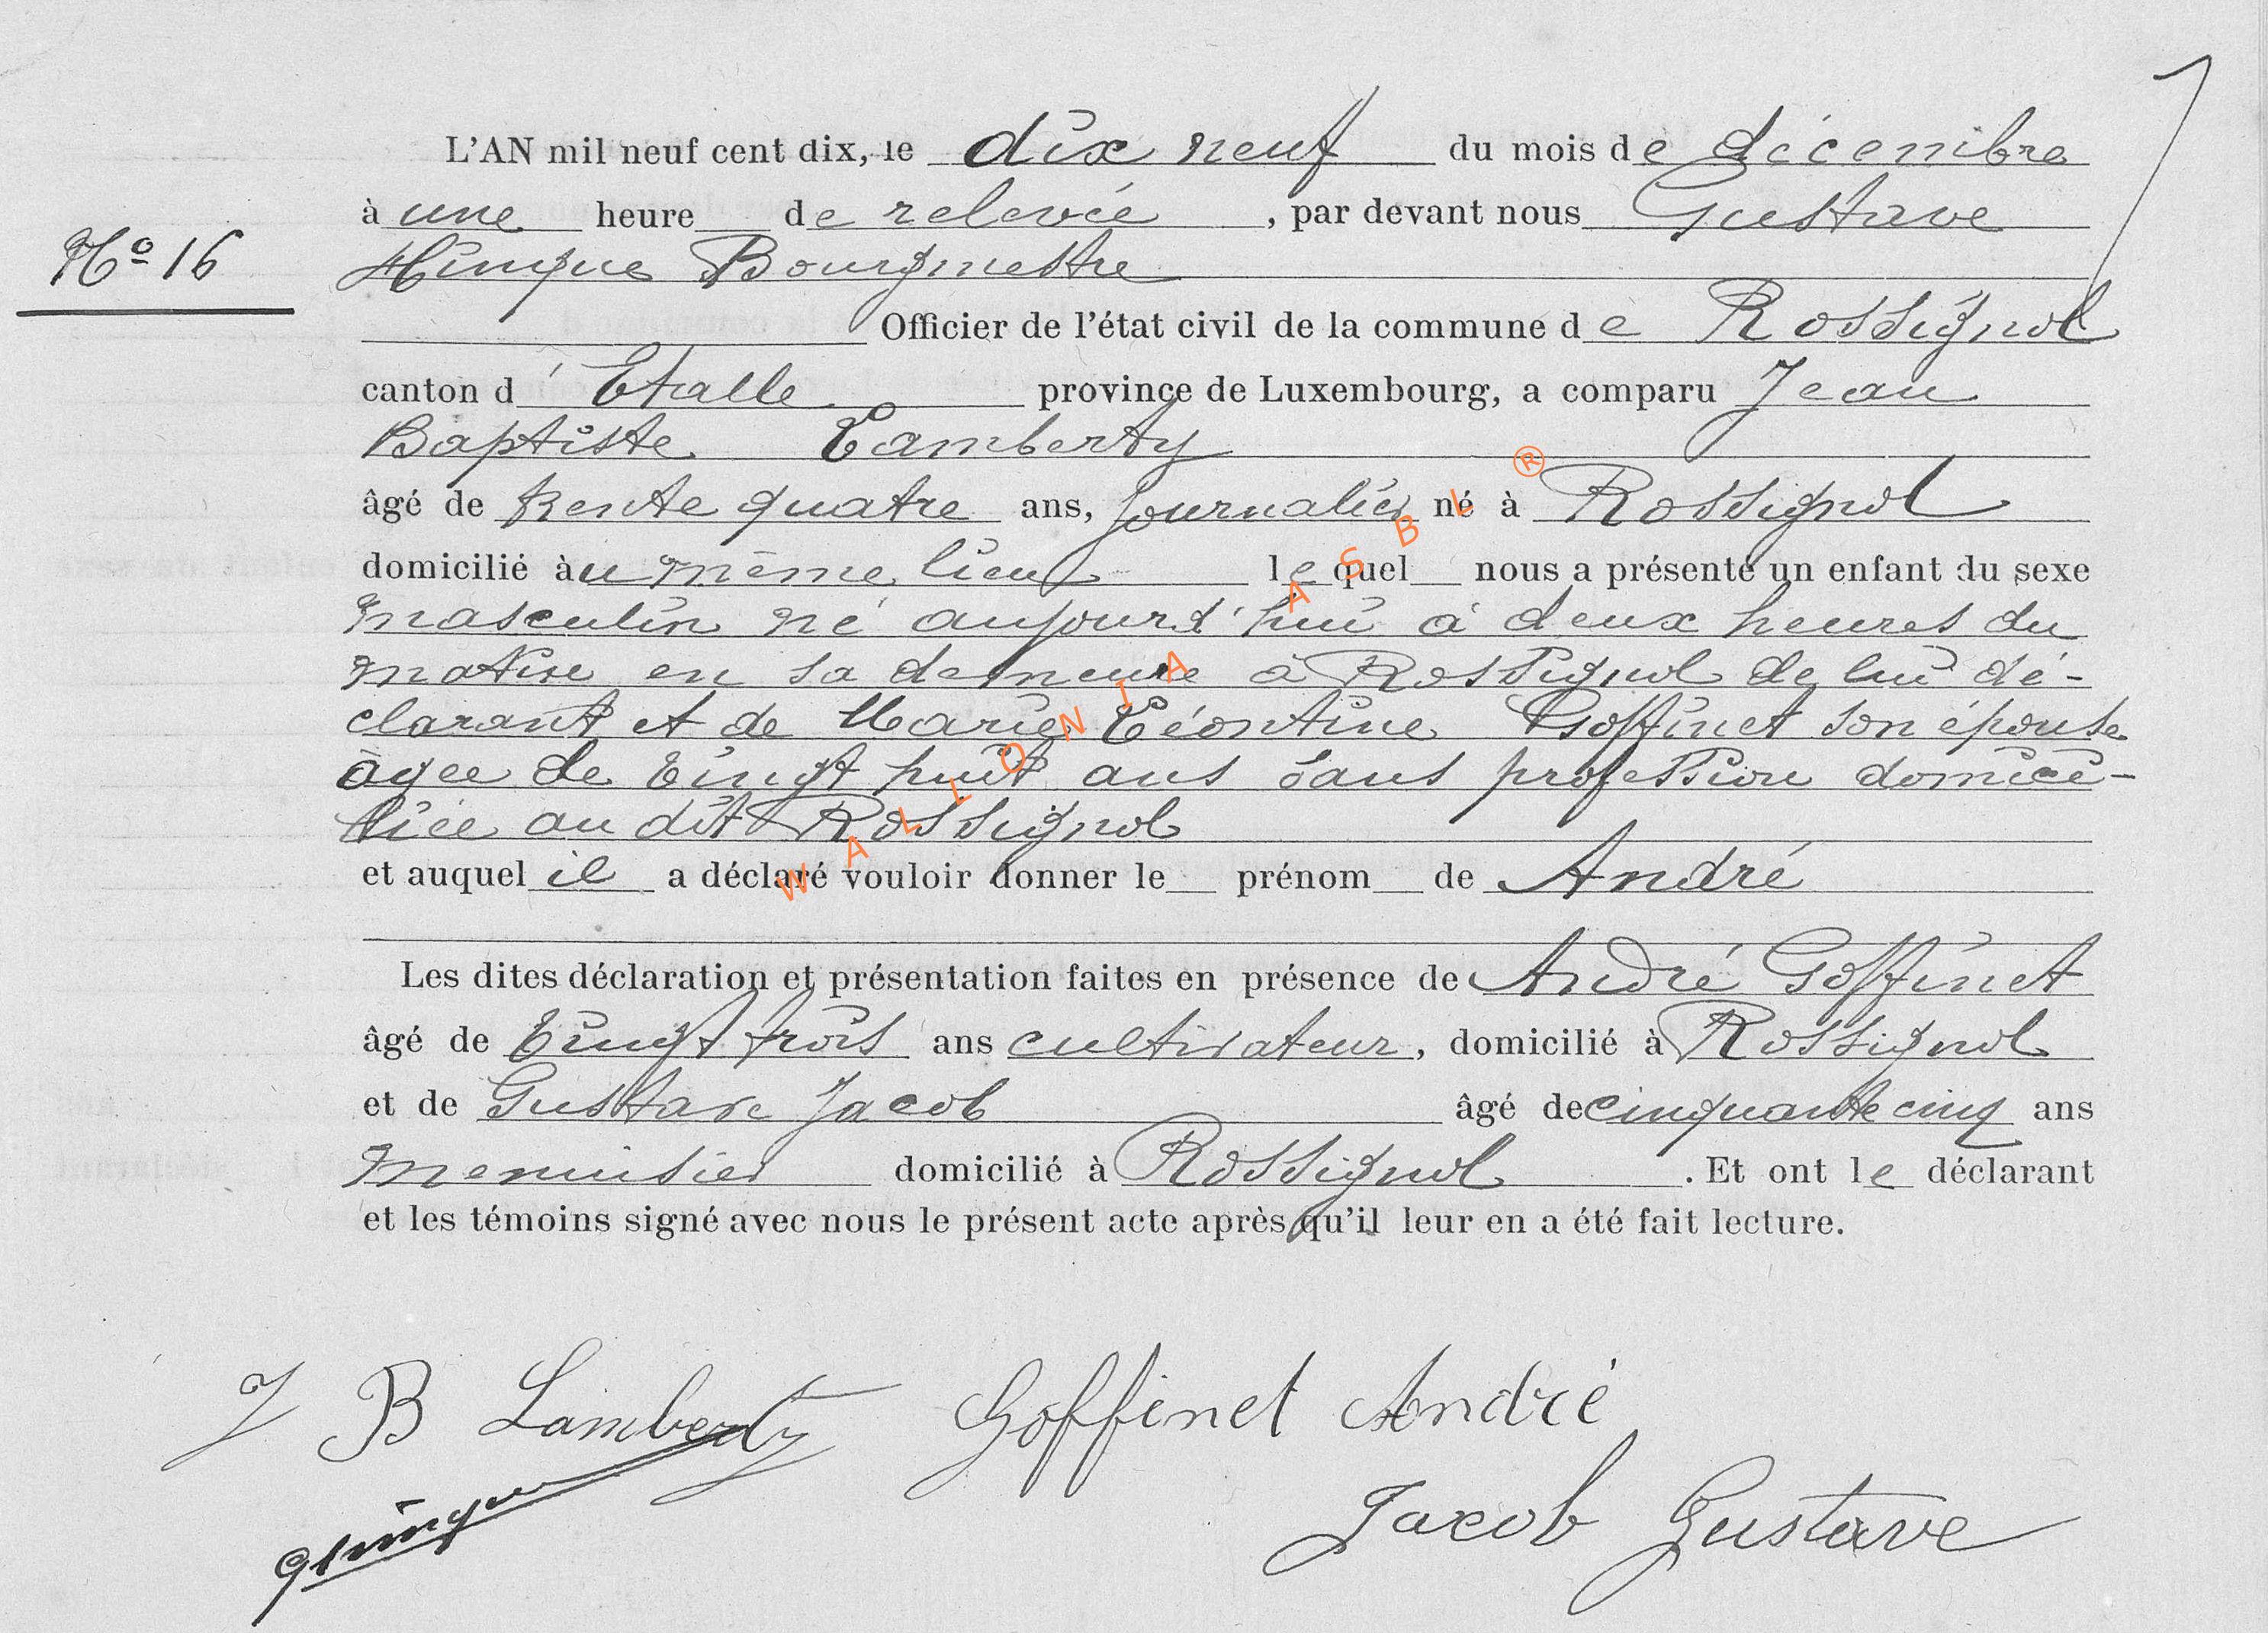 L'AN mil neuf cent dix, le dix neuf du mois de décembre
à une heure de relevée, par devant nous Gustave
N° 16
Hinque Bourgmestre
Officier de l'état civil de la commune de Rossignol
canton d'Etalle province de Luxembourg, a comparu Jean
Baptiste Lamberty
âgé de trente quatre ans, journalier né à Rossignol
domicilié au même lieu lequel nous a présenté un enfant du sexe
masculin né aujourd'hui à deux heures du
matin en sa demeure à Rossignol de lui dé-
clarant et de Marie Léontine Goffinet son épouse
âgée de vingt huit ans sans profession domici-
liée au dit Rossignol
et auquel il a déclaré vouloir donner le prénom de André
Les dites déclaration et présentation faites en présence de André Goffinet
âgé de vingt trois ans cultivateur, domicilié à Rossignol
et de Gustave Jacob âgé de cinquante cinq ans
menuisier domicilié à Rossignol. Et ont le déclarant
et les témoins signé avec nous le présent acte après qu'il leur en a été fait lecture.
J B Lamberty Goffinet André
GHinque
Jacob Gustave
WALLONIA ASBL ®